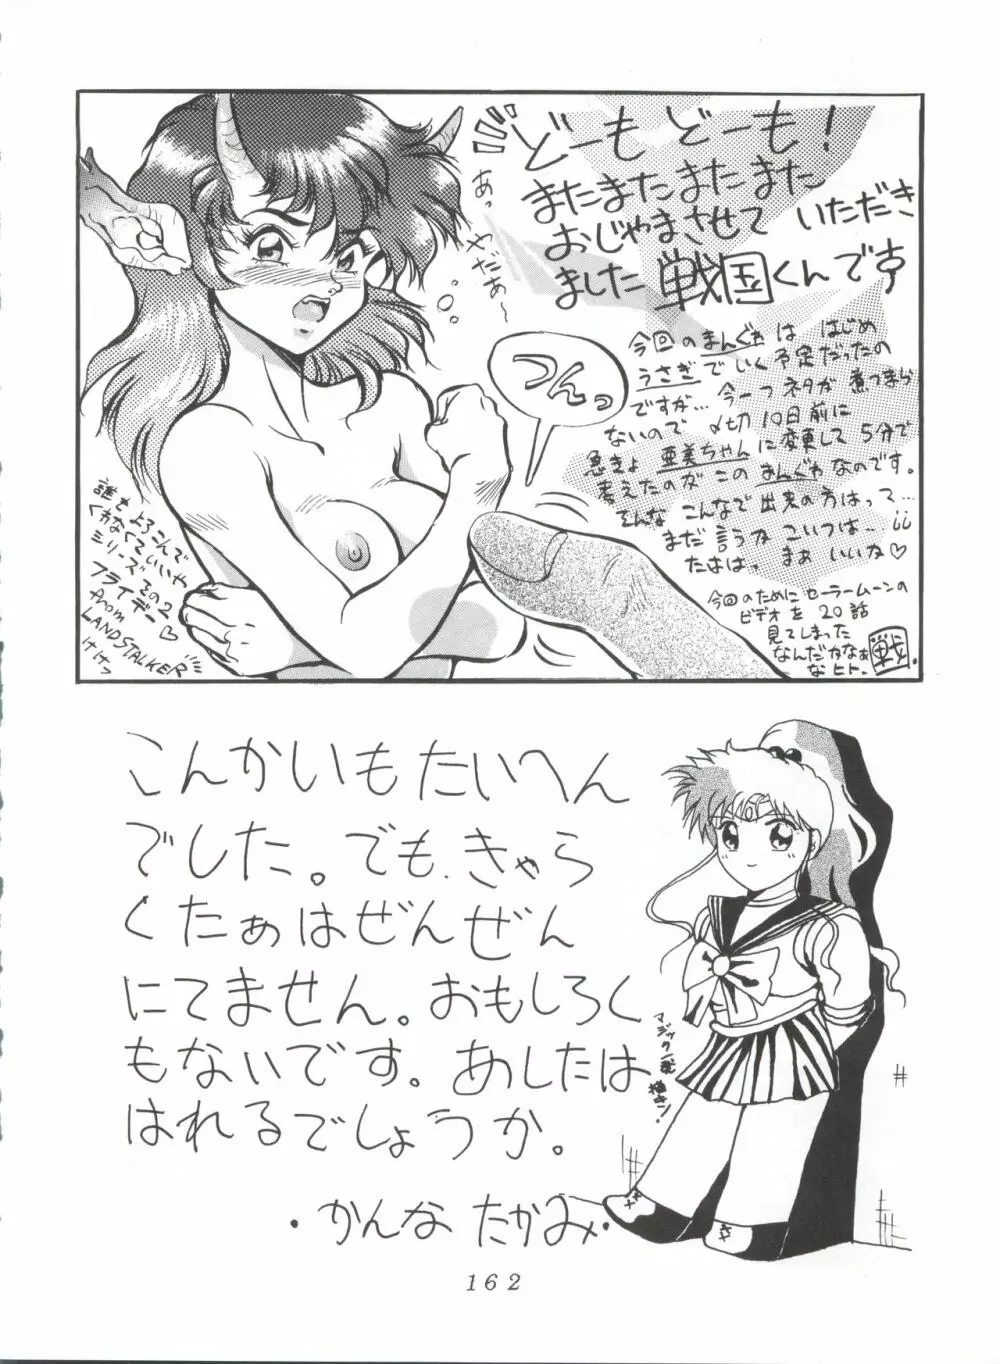 どーも どーも!
またまたまたまた
おじゃまさせて いただき
ました 戦国くんです
あっ
やだぁ〜
つんっ
今回のまんぐゎは はじめ
うさぎでいく予定だったの
ですが… 今一つネタが煮つまら
ないので 〆切10日前に
急きょ 亜美ちゃんに変更して 5分で
考えたのがこのまんぐゎなのです。
そんな こんなで出来の方はって…
まだ言うか こいつは…
たはは。 まぁ いいか♡
今回のためにセーラームーンの
ビデオを 20話
見てしまった
なんだかなぁ
なヒト。
戦
誰も よろこんで
くれなくていいや
シリーズ その2
フライデー♡
from
LANDSTALKER
けけっ
こんかいもたいへん
でした。でも、きゃら
くたぁはぜんぜん
にてません。おもしろく
もないです。あしたは
はれるでしょうか。
・かんな たかみ・
マジック一発描き!
162